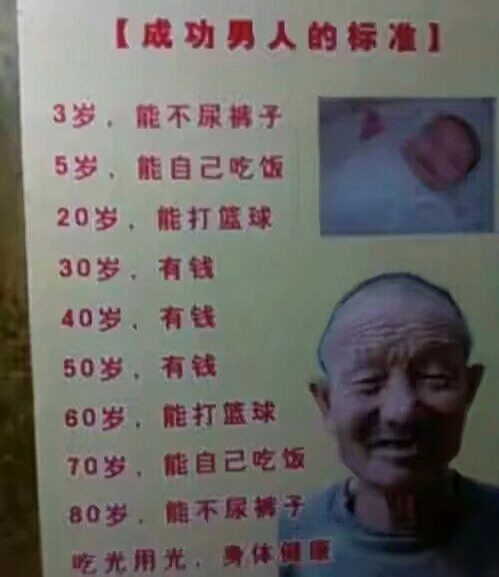 【成功男人的标准】
3岁，能不尿裤子
5岁，能自己吃饭
20岁，能打篮球
30岁，有钱
40岁，有钱
50岁，有钱
60岁，能打篮球
70岁，能自己吃饭
80岁，能不尿裤子
吃光用光，身体健康